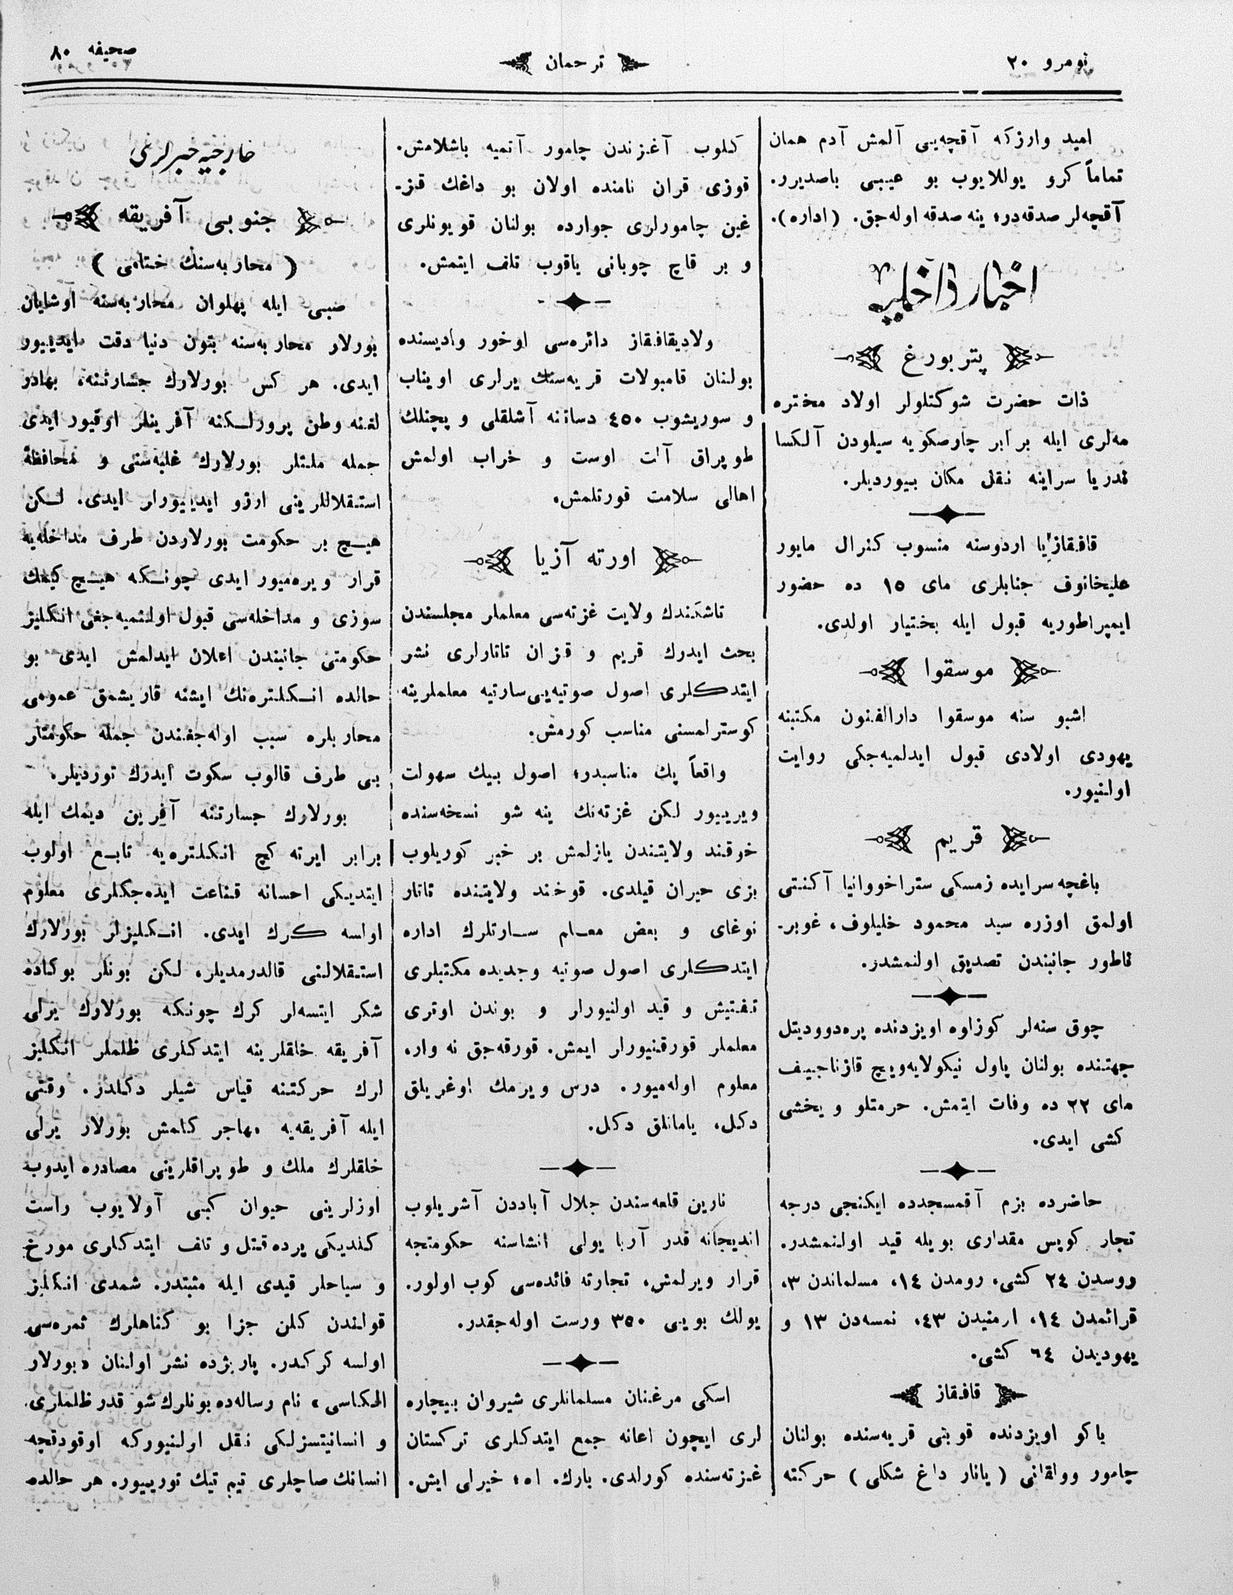 نومرو ٢٠
ترجمان
صحیفه ٨٠
امید واركه آقچه‌یی آلمش آدم همان
تماماً كرو یوللایوب بو عیبی باصدیرو.
آقچه‌لر صدقه‌در؛ ینه صدقه اوله‌جق. (اداره).
اخبار داخلیه
پتربورغ
ذات حضرت شوكتلولر اولاد مختره
مه‌لری ایله برابر چارصكویه سیلودن آلكسا
ندریا سراینه نقل مكان بیوردیلر.
قافقازیا اردوسنه منسوب كنرال مایور
علیخانوف جنابلری مای ١٥ ده حضور
ایمپراطوریه قبول ایله بختیار اولدی.
موسقوا
اشبو سنه موسقوا دارالفنون مكتبنه
یهودی اولادی قبول ایدلمیه‌جكی روایت
اولنیور.
قریم
باغچه‌سرایده زمسكی ستراخووانیا آكنتی
اولمق اوزره سید محمود خلیلوف، غوبر-
ناطور جانبندن تصدیق اولنمشدر.
چوق سنه‌لر كوزلوه اویزدنده پره‌دوودیتل
جهتنده بولنان پاول نیكولایه‌ویچ قازناچییف
مای ٢٢ ده وفات ایتمش. حرمتلو و یخشی
كشی ایدی.
حاضرده بزم آقمسجدده ایكنجی درجه
تجار كوپس مقداری بویله قید اولنمشدر.
روسدن ٢٤ كشی، رومدن ١٤، مسلماندن ٣،
قرائمدن ١٤، ارمنیدن ٤٣، نمسه‌دن ١٣ و
یهودیدن ٦٤ كشی.
قافقاز
باكو اویزدنده قوبنی قریه‌سنده بولنان
چامور وولقانی (یانار داغ شكلی) حركته
كلوب آغزندن چامور آتمیه باشلامش.
قوزی قران نامنده اولان بو داغك قز-
غین چامورلری جوارده بولنان قویونلری
و بر قاچ چوبانی یاقوب تلف ایتمش.
ولادیقافقاز دائره‌سی اوخور وادیسنده
بولنان قامبولات قریه‌سنك یرلری اویناب
و سوریشوب ٤٥٠ دساتنه آشلقلی و پچنلك
طوپراق آلت اوست و خراب اولمش
اهالی سلامت قورتلمش.
اورته آزیا
تاشكندك ولایت غزته‌سی معلملر مجلسندن
بحث ایدرك قریم و قزان تاتارلری نشر
ایتدكلری اصول صوتیه‌یی‌سارتیه معلملرینه
كوسترلمسنی مناسب كورمش.
واقعاً پك مناسبدر؛ اصول بیك سهولت
ویرییور لكن غزته‌نك ینه شو نسخه‌سنده
خوقند ولایتندن یازلمش بر خبر كوریلوب
بزی حیران قیلدی. قوخند ولایتنده تاتار
نوغای و بعض معلم سارتلرك اداره
ایتدكلری اصول صوتیه وجدیده مكتبلری
تفتیش و قید اولنیورلر و بوندن اوتری
معلملر قورقنیورلر ایمش. قورقه‌جق نه وار،
معلوم اوله‌میور. درس ویرمك اوغریلق
دكل، یامانلق دكل.
نارین قلعه‌سندن جلال آباددن آشریلوب
اندیجانه قدر آربا یولی انشاسنه حكومتجه
قرار ویرلمش، تجارته فائده‌سی كوب اولور.
یولك بویی ٣٥٠ ورست اوله‌جقدر.
اسكی مرغنان مسلمانلری شیروان بیچاره
لری ایچون اعانه جمع ایتدكلری تركستان
غزته‌سنده كورلدی. بارك. اه؛ خیرلی ایش.
خارجیه خبرلری
جنوبی آفریقه
(محاربه‌سنك ختامی)
صبی ایله پهلوان محاربه‌سنه اوشایان
بورلار محاربه‌سنه بتون دنیا دقت ایدییور
ایدی. هر كس بورلارك جسارتنه، بهادر
لغنه وطن پرورلكنه آفرینلر اوقیور ایدی
جمله ملتلر بورلارك غلبه‌سنی و محافظهٔ
استقلاللرینی ارزو ایدییورلر ایدی. لكن
هیچ بر حكومت بورلاردن طرف مداخله‌یه
قرار ویره‌میور ایدی چونكه هیچ كیمك
سوزی و مداخله‌سی قبول اولنمیه‌جغی انكلیز
حكومتی جانبندن اعلان ایدلمش ایدی بو
حالده انكلتره‌نك ایشنه قاریشمق عمومی
محاربلره سبب اوله‌جغندن جمله حكومتلر
بی طرف قالوب سكوت ایدرك توردیلر.
بورلارك جسارتنه آفرین دیمك ایله
برابر ایرته كچ انكلتره‌یه تابع اولوب
ایتدیكی احسانه قناعت ایده‌جكلری معلوم
اولسه كرك ایدی. انكلیزلر بورلارك
استقلالنی قالدرمدیلر، لكن بونلر بوكاده
شكر ایتسه‌لر كرك چونكه بورلارك یرلی
آفریقه خلقلرینه ایتدكلری ظلملر انكلیز
لرك حركتنه قیاس شیلر دكلدر. وقتی
ایله آفریقه‌یه مهاجر كلمش بورلار یرلی
خلقلرك ملك و طوپراقلرینی مصادره ایدوب
اوزلرینی حیوان كبی آولایوب راست
كلدیكی یرده قتل و تلف ایتدكلری مورخ
و سیاحلر قیدی ایله مثبتدر. شمدی انكلیز
قولندن كلن جزا بو كناهلرك ثمره‌سی
اولسه كركدر. پاریژده نشر اولنان «بورلار
الحكاسی» نام رساله‌ده بونلرك شو قدر ظلملری
و انسانیتسزلكی نقل اولنیوركه اوقودقچه
انسانك صاچلری تیم تیك تورییور. هر حالده